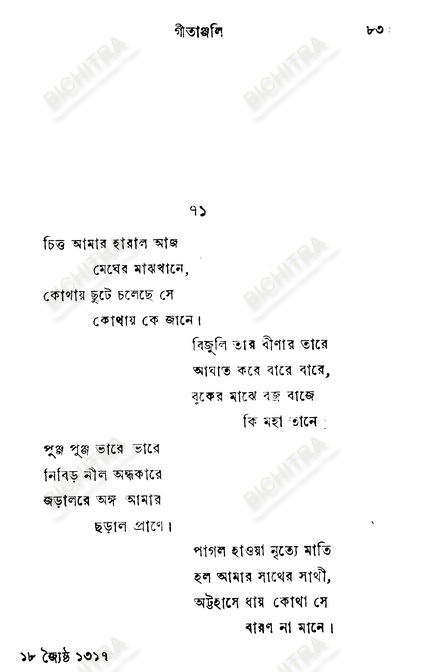 গীতাঞ্জলি ৮৩
৭১
চিত্ত আমার হারাল আজ
মেঘের মাঝখানে,
কোথায় ছুটে চলেছে সে
কোথায় কে জানে।
বিজুলি তার বীণার তারে
আঘাত করে বারে বারে,
বুকের মাঝে বজ্র বাজে
কি মহা তানে।
পুঞ্জ পুঞ্জ ভারে ভারে
নিবিড় নীল অন্ধকারে
জড়ালরে অঙ্গ আমার
ছড়াল প্রাণে।
পাগল হাওয়া নৃত্যে মাতি
হল আমার সাথের সাথী,
অট্টহাসে ধায় কোথা সে
বারণ না মানে।
১৮ জ্যৈষ্ঠ ১৩১৭
BICHITRA
BICHITRA
BICHITRA
BICHITRA
BICHITRA
BICHITRA